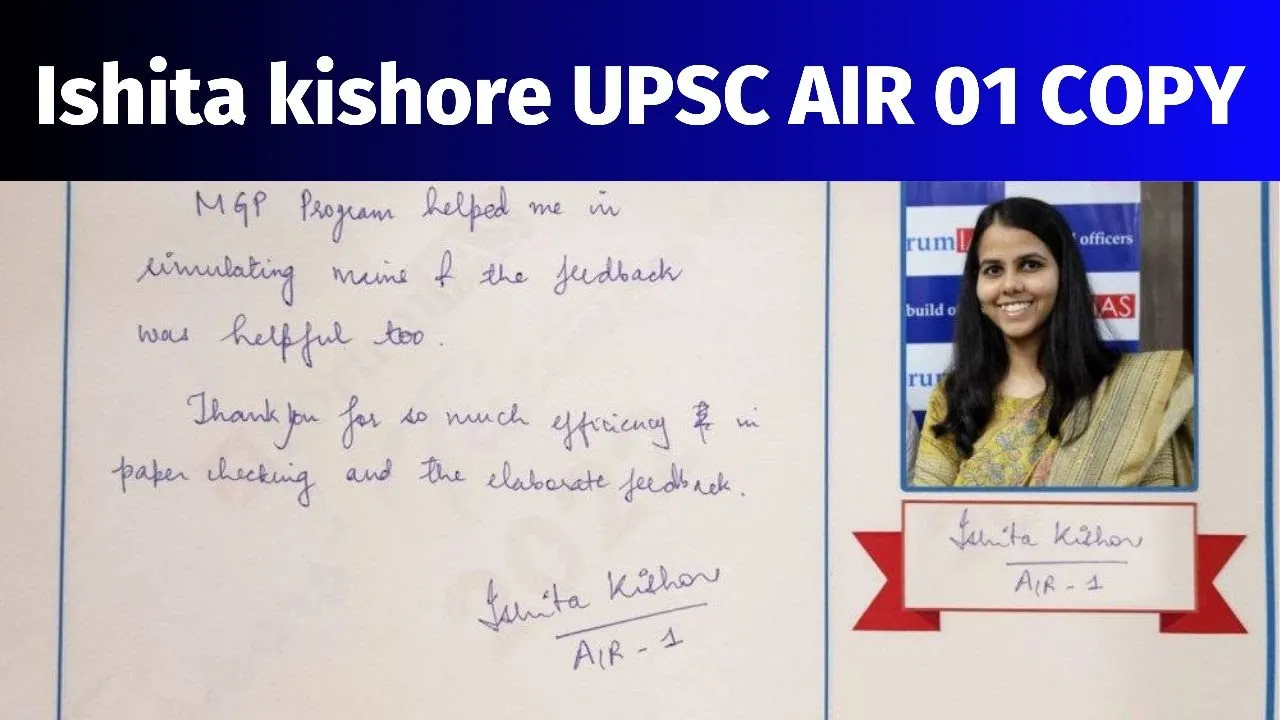 Ishita kishore UPSC AIR 01 COPY
MGP Program helped me in
simulating mains & the feedback
was helpful too.
Thank you for so much efficiency & in
paper checking and the elaborate feedback.
Ishita Kishore
AIR - 1
rum IA
officers
build o
IAS
ru
Ishita Kishore
AIR - 1